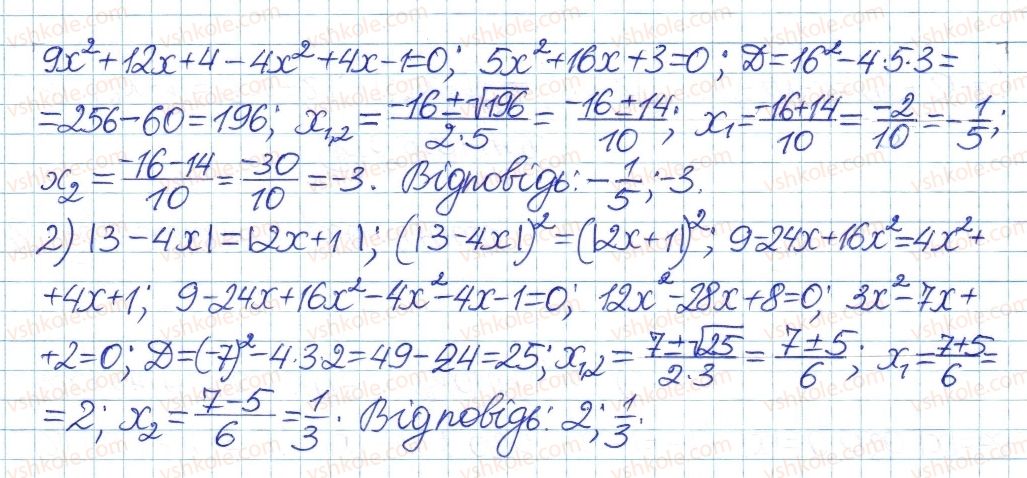 9x²+12x+4-4x²+4x-1=0; 5x²+16x+3=0; D=16²-4·5·3=
=256-60=196; x₁,₂=(-16±√196)/(2·5)=(-16±14)/10; x₁=(-16+14)/10=-2/10=-1/5;
x₂=(-16-14)/10=-30/10=-3. Відповідь: -1/5; -3.
2) |3-4x|=|2x+1|; (|3-4x|)²=(|2x+1|)²; 9-24x+16x²=4x²+
+4x+1; 9-24x+16x²-4x²-4x-1=0; 12x²-28x+8=0; 3x²-7x+
+2=0; D=(-7)²-4·3·2=49-24=25; x₁,₂=(7±√25)/(2·3)=(7±5)/6; x₁=(7+5)/6=
=2; x₂=(7-5)/6=1/3. Відповідь: 2; 1/3.